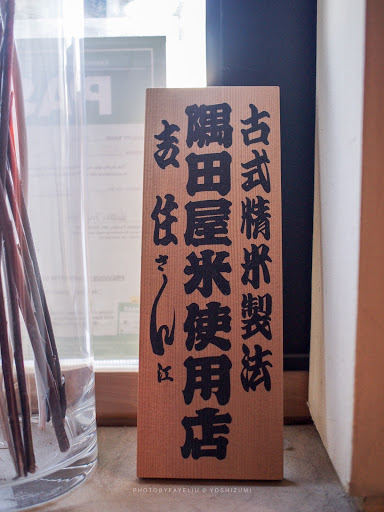 古式精米製法
隅田屋米使用店
吉住さん江
PHOTOBYFAYELIU @ YOSHIZUMI